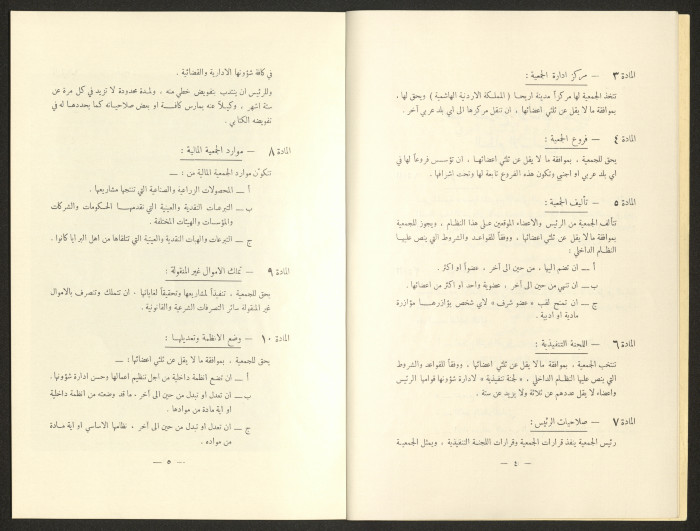 المادة ٣ — مركز ادارة الجمعية :
تتخذ الجمعية لها مركزاً مدينة اريحا ( المملكة الاردنية الهاشمية ) ويحق لها ،
بموافقة ما لا يقل عن ثلثي اعضائها ، ان تنقل مركزها الى اي بلد عربي آخر .
المادة ٤ — فروع الجمعية :
يحق للجمعية ، بموافقة ما لا يقل عن ثلثي اعضائهـا ، ان تؤسس فروعاً لها في
اي بلد عربي او اجنبي وتكون هذه الفروع تابعة لها وتحت اشرافها .
المادة ٥ — تأليف الجمعية :
تتألف الجمعية من الرئيس والاعضاء الموقعين على هذا النظـام ، ويجوز للجمعية
بموافقة ما لا يقل عن ثلثي اعضائها ، ووفقاً للقواعـد والشروط التي ينص عليهـا
النظـام الداخلي :
أ — ان تضم اليها ، من حين الى آخر ، عضواً او اكثر .
ب— ان تنهي من حين الى آخر ، عضوية واحد او اكثر من اعضائها .
ج — ان تمنح لقب « عضو شرف » لاي شخص يؤازرهـا مؤازرة
مادية او ادبية .
المادة ٦ — اللجنة التنفيذية :
تنتخب الجمعية ، بموافقة ما لا يقل عن ثلثي اعضائها ، ووفقاً للقواعد والشروط
التي ينص عليها النظـام الداخلي ، « لجنة تنفيذية » لادارة شؤونها قوامها الرئيس
واعضاء لا يقل عددهم عن ثلاثة ولا يزيد عن ستة .
المادة ٧ — صلاحيات الرئيس :
رئيس الجمعية ينفذ قرارات الجمعية وقرارات اللجنـة التنفيذية ، ويمثل الجمعيـة
— ٤ —
في كافة شؤونها الادارية والقضائية .
وللرئيس ان ينتدب بتفويض خطي منه ، ولمدة محدودة لا تزيد في كل مرة عن
ستة اشهر ، وكيـلا عنه يمارس كافـة او بعض صلاحياته كما يحددها له في
تفويضه الكتابي .
المادة ٨ — موارد الجمعية المالية :
تتكون موارد الجمعية المالية من : —
أ — المحصولات الزراعية والصناعية التي تنتجها مشاريعها .
ب— التبرعات النقدية والعينية التي تقدمهـا الحكومات والشركات
والمؤسسات والهيئات المختلفة .
ج — التبرعات والهبات النقدية والعينية التي تتلقاها من اهل البر ايا كانوا .
المادة ٩ — تملك الاموال غير المنقولة :
يحق للجمعية ، تنفيذاً لمشاريعها وتحقيقاً لغاياتها ، ان تتملك وتتصرف بالاموال
غير المنقولة سائر التصرفات الشرعية والقانونية .
المادة ١٠ — وضع الانظمة وتعديلهـا :
يحق للجمعية ، بموافقة ما لا يقل عن ثلثي اعضائها : —
أ — ان تضع انظمة داخلية من اجل تنظيم اعمالها وحسن ادارة شؤونها.
ب— ان تعدل او تبدل من حين الى آخر ، ما قد وضعته من انظمة داخلية
او اية مادة من موادها .
ج — ان تعدل او تبدل من حين الى آخر ، نظامها الاساسي او اية مـادة
من مواده .
— ٥ —